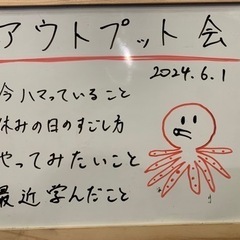 アウトプット会
2024.6.1
今ハマっていること
休みの日のすごし方
やってみたいこと
最近学んだこと